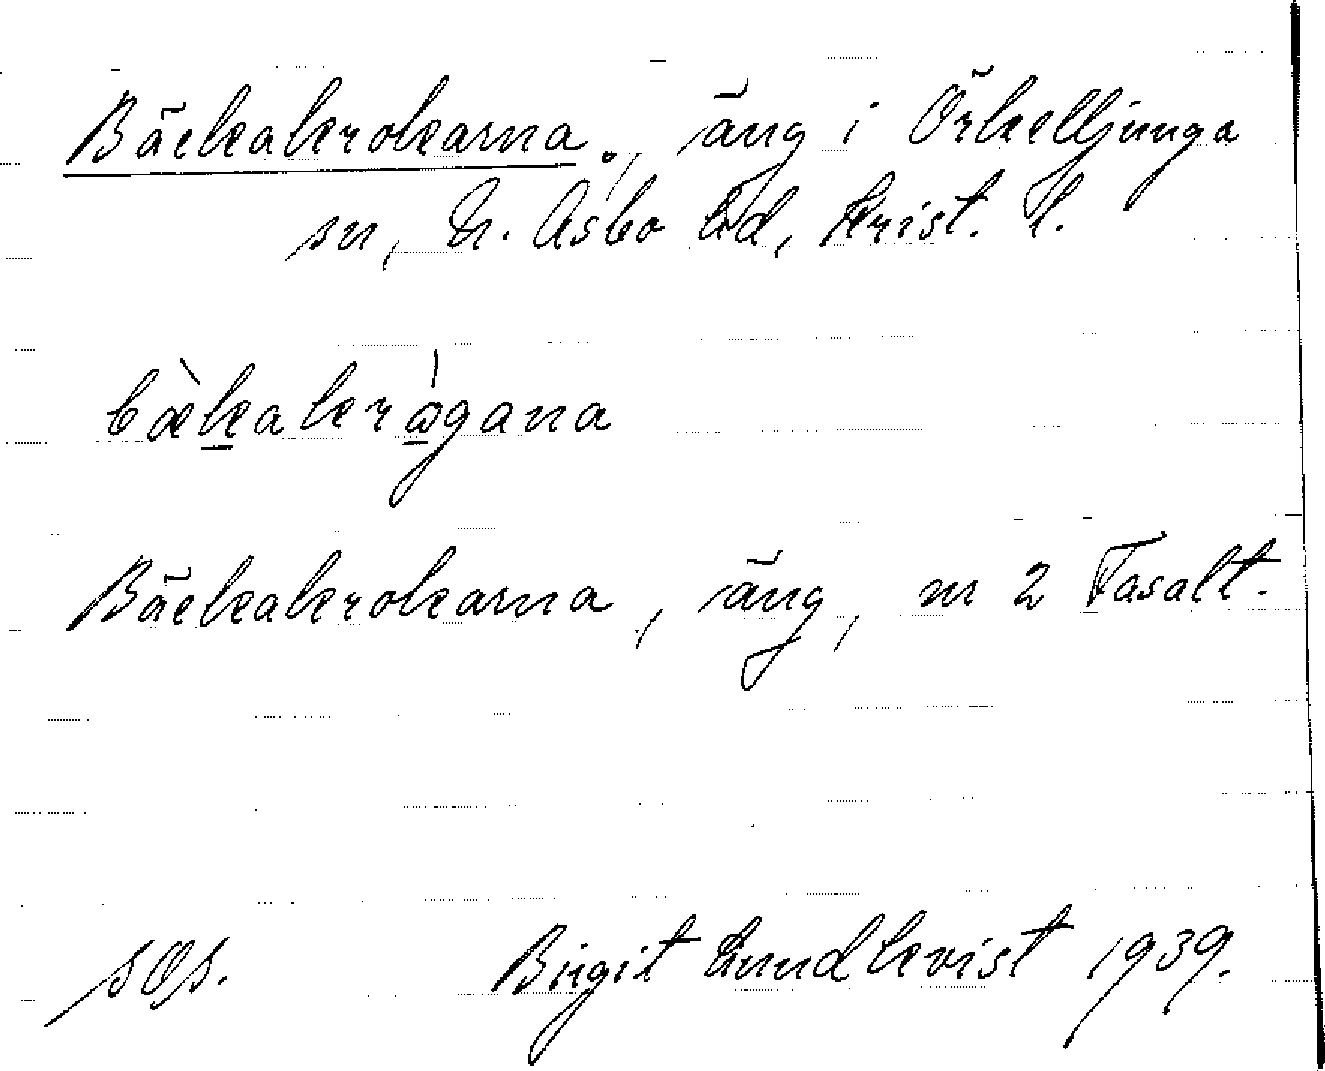 Bäckakrokarna, äng i Örkelljunga
sn, N. Åsbo hd, Krist. l.
bàkakrågana
Bäckakrokarna, äng, nr 2 Fasalt.
sOs. Birgit Lundkvist 1939.